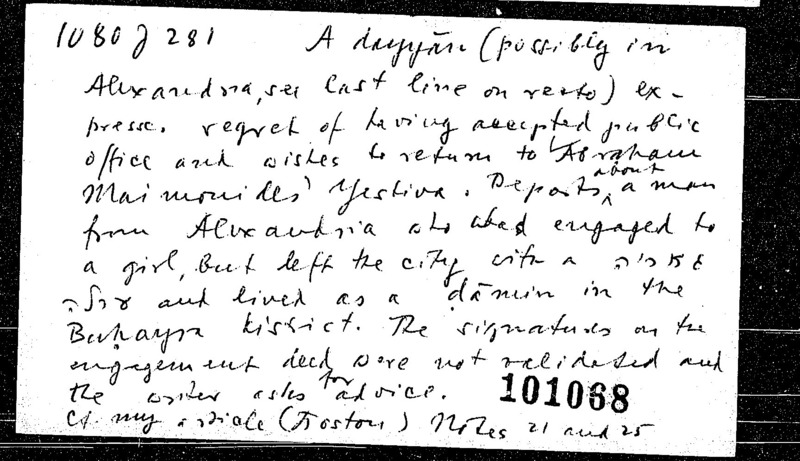 1080 J 281 A dayyān (possibly in
Alexandria, see last line on recto) ex-
presses regret of having accepted public
office and wishes to return to Abraham
Maimonides' Yestiva. Reports about a man
from Alexandria who had engaged to
a girl, but left the city with a
and lived as a ḍāmin in the
Buḥayra district. The signatures on the
engagement deed were not validated and
the writer asks for advice. 101068
Cf. my article (Trostom) Notes 21 and 25